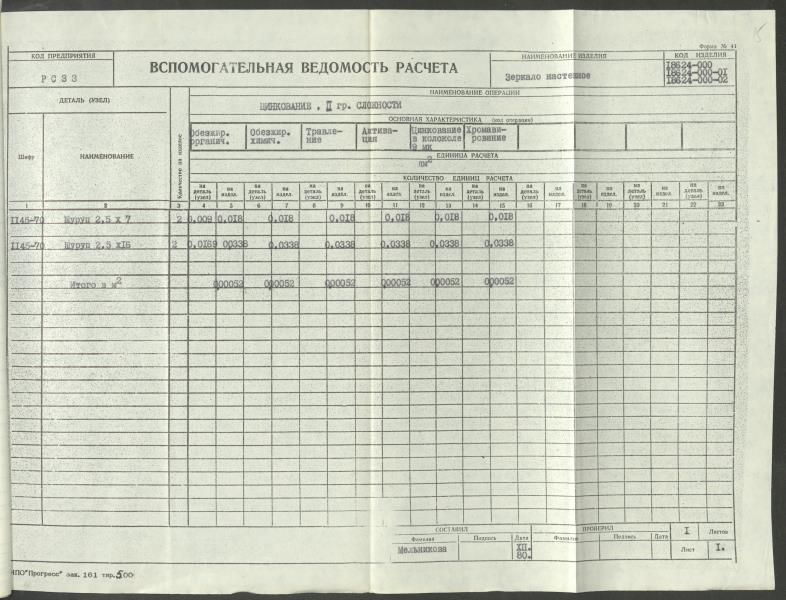 Форма № 41
КОД ПРЕДПРИЯТИЯ
РСЗЗ
ВСПОМОГАТЕЛЬНАЯ ВЕДОМОСТЬ РАСЧЕТА
НАИМЕНОВАНИЕ ИЗДЕЛИЯ
Зеркало настенное
КОД ИЗДЕЛИЯ
I8624-000
I8624-000-0I
I8624-000-02
ДЕТАЛЬ (УЗЕЛ)
Количество на изделие
НАИМЕНОВАНИЕ ОПЕРАЦИИ
ЦИНКОВАНИЕ , II гр. СЛОЖНОСТИ
ОСНОВНАЯ ХАРАКТЕРИСТИКА (код операции)
Обезжир. органич. Обезжир. химич. Травле-ние Актива-ция Цинкование в колоколе 9 мк Хромати-рование
Шифр НАИМЕНОВАНИЕ
ЕДИНИЦА РАСЧЕТА
дм2
КОЛИЧЕСТВО ЕДИНИЦ РАСЧЕТА
на деталь (узел) на издел. на деталь (узел) на издел. на деталь (узел) на издел. на деталь (узел) на издел. на деталь (узел) на издел. на деталь (узел) на издел. на деталь (узел) на издел. на деталь (узел) на издел. на деталь (узел) на издел. на деталь (узел) на издел.
1 2 3 4 5 6 7 8 9 10 11 12 13 14 15 16 17 18 19 20 21 22 23
II45-70 Шуруп 2,5 х 7 2 0,009 0,0I8 0,0I8 0,0I8 0,0I8 0,0I8 0,0I8
II45-70 Шуруп 2,5 хI6 2 0,0I69 00338 0,0338 0,0338 0,0338 0,0338 0,0338
Итого в м2 000052 000052 000052 000052 000052 000052
СОСТАВИЛ ПРОВЕРИЛ I Листов
Фамилия Подпись Дата Фамилия Подпись Дата
Мельникова XII. 80. Лист I.
МПО"Прогресс" зак. 161 тир. 500